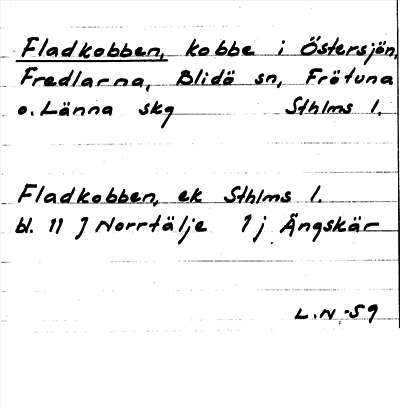 Fladkobben, kobbe i Östersjön,
Fredlarna, Blidö sn, Frötuna
o. Länna skg Sthlms l.
Fladkobben, ek Sthlms l.
bl. 11 J Norrtälje 1 j Ängskär
L.N.-59